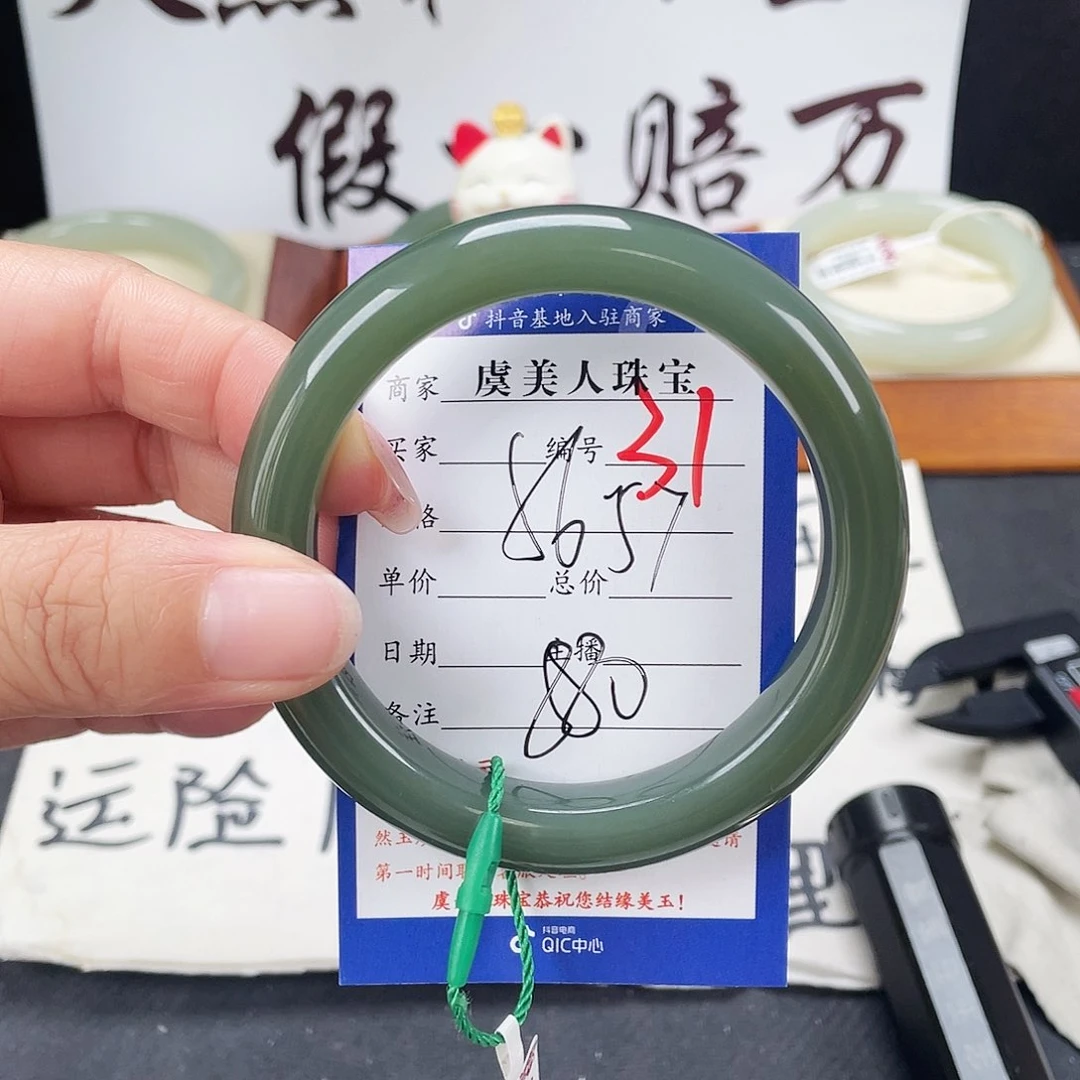 假 赔万
抖音基地入驻商家
商家 虞美人珠宝
买家 编号 31
格 8657
单价 总价
日期 主播
80
备注
然玉
请
第一时间联
虞 珠宝恭祝您结缘美玉!
抖音电商
QIC中心
运险
理